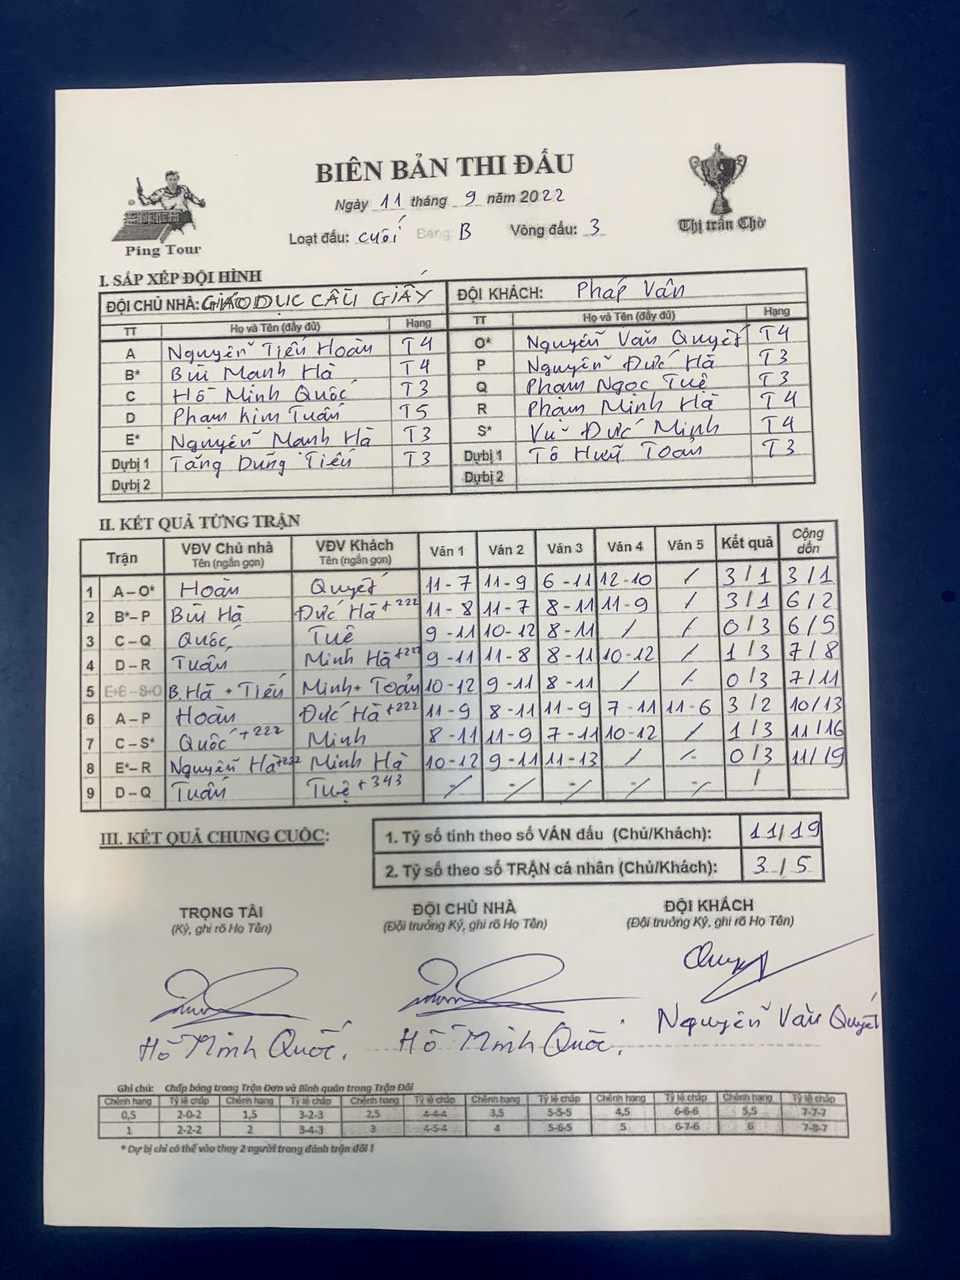 BIÊN BẢN THI ĐẤU
Ping Tour
Thị trấn Chờ
Ngày 11 tháng 9 năm 2022
Loạt đấu: cuối Bảng B Vòng đấu: 3
I. SẮP XẾP ĐỘI HÌNH
ĐỘI CHỦ NHÀ: GIÁO DỤC CẦU GIẤY ĐỘI KHÁCH: Pháp Vân
TT Họ và Tên (đầy đủ) Hạng TT Họ và Tên (đầy đủ) Hạng
A Nguyễn Tiến Hoàn T4 O* Nguyễn Văn Quyết T4
B* Bùi Mạnh Hà T4 P Nguyễn Đức Hà T3
C Hồ Minh Quốc T3 Q Phạm Ngọc Tuệ T3
D Phạm Kim Tuấn T5 R Phạm Minh Hà T4
E* Nguyễn Mạnh Hà T3 S* Vũ Đức Minh T4
Dự bị 1 Tăng Dũng Tiến T3 Dự bị 1 Tô Hữu Toản T3
Dự bị 2 Dự bị 2
II. KẾT QUẢ TỪNG TRẬN
Trận VĐV Chủ nhà Tên (ngắn gọn) VĐV Khách Tên (ngắn gọn) Ván 1 Ván 2 Ván 3 Ván 4 Ván 5 Kết quả Cộng dồn
1 A – O* Hoàn Quyết 11-7 11-9 6-11 12-10 / 3/1 3/1
2 B* – P Bùi Hà Đức Hà +222 11-8 11-7 8-11 11-9 / 3/1 6/2
3 C – Q Quốc Tuệ 9-11 10-12 8-11 / / 0/3 6/5
4 D – R Tuấn Minh Hà +222 9-11 11-8 8-11 10-12 / 1/3 7/8
5 E+B – S+O B.Hà + Tiến Minh + Toản 10-12 9-11 8-11 / / 0/3 7/11
6 A – P Hoàn Đức Hà +222 11-9 8-11 11-9 7-11 11-6 3/2 10/13
7 C – S* Quốc +222 Minh 8-11 11-9 7-11 10-12 / 1/3 11/16
8 E* – R Nguyễn Hà +222 Minh Hà 10-12 9-11 11-13 / / 0/3 11/19
9 D – Q Tuấn Tuệ +343 -/ -/ -/ -/ -/ /
III. KẾT QUẢ CHUNG CUỘC:
1. Tỷ số tính theo số VÁN đấu (Chủ/Khách): 11/19
2. Tỷ số theo số TRẬN cá nhân (Chủ/Khách): 3/5
TRỌNG TÀI ĐỘI CHỦ NHÀ ĐỘI KHÁCH
(Ký, ghi rõ Họ Tên) (Đội trưởng Ký, ghi rõ Họ Tên) (Đội trưởng Ký, ghi rõ Họ Tên)
Hồ Minh Quốc. Hồ Minh Quốc. Nguyễn Văn Quyết
Ghi chú: Chấp bảng trong Trận Đơn và Bình quân trong Trận Đôi
Chênh hạng Tỷ lệ chấp Chênh hạng Tỷ lệ chấp Chênh hạng Tỷ lệ chấp Chênh hạng Tỷ lệ chấp Chênh hạng Tỷ lệ chấp Chênh hạng Tỷ lệ chấp
0,5 2-0-2 1,5 3-2-3 2,5 4-4-4 3,5 5-5-5 4,5 6-6-6 5,5 7-7-7
1 2-2-2 2 3-4-3 3 4-5-4 4 5-6-5 5 6-7-6 6 7-8-7
* Dự bị chỉ có thể vào thay 2 người trong đánh trận đôi !